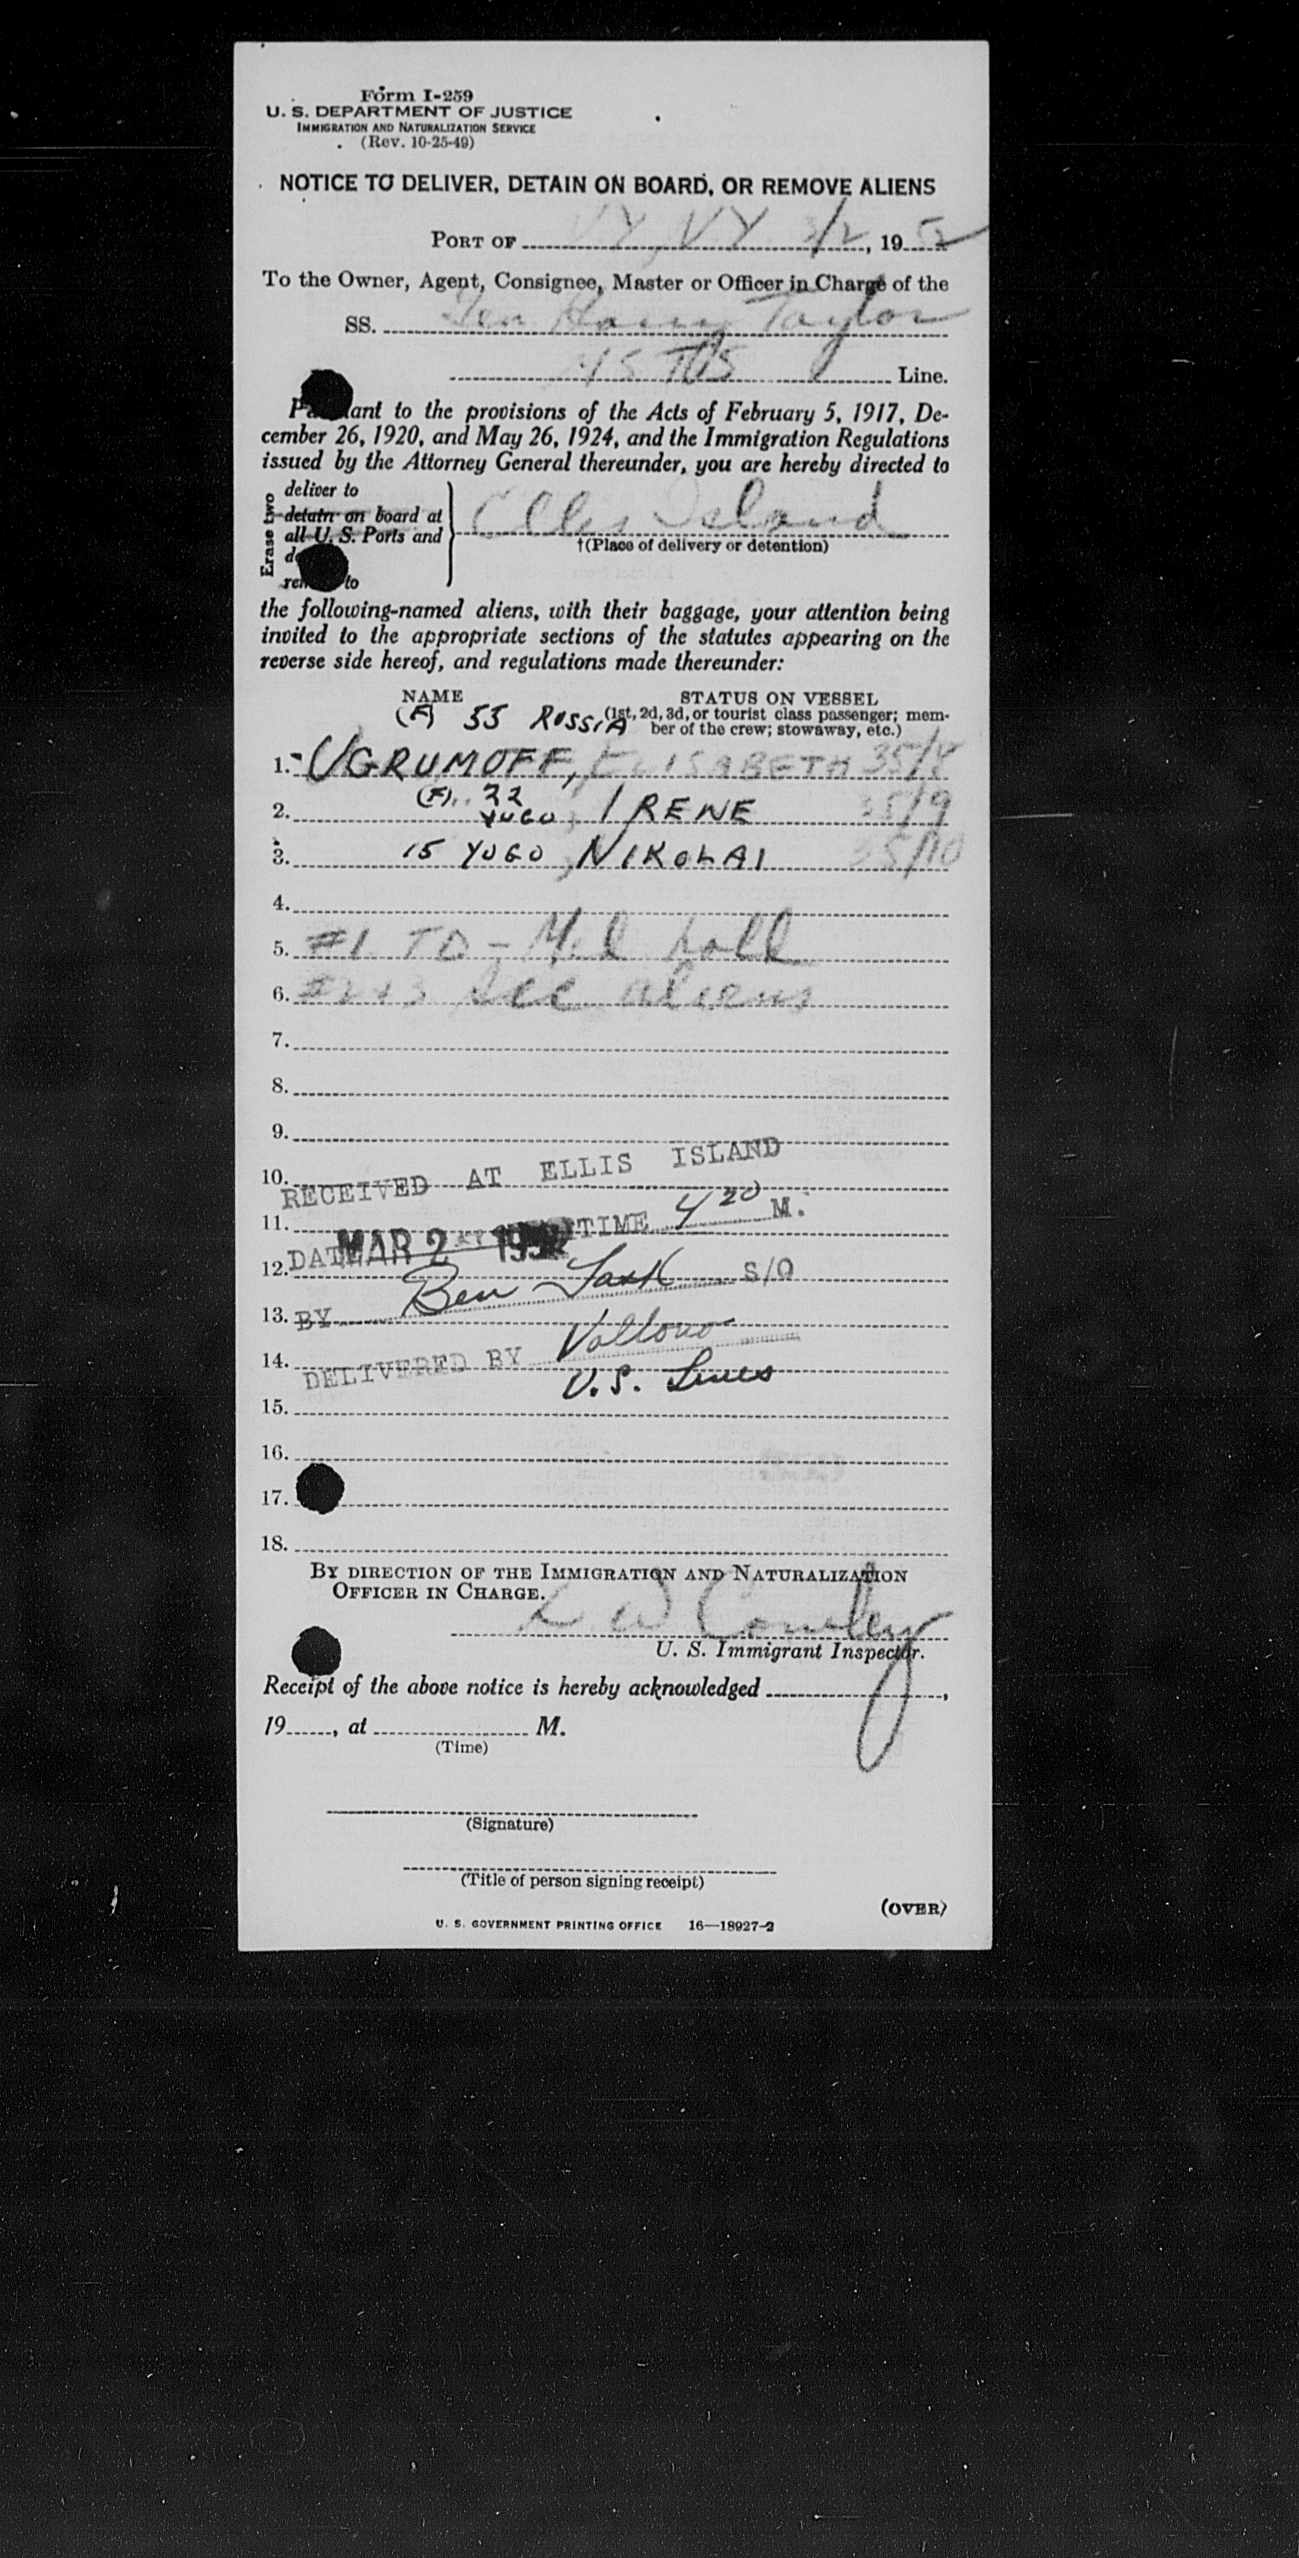 Form I-259
U. S. DEPARTMENT OF JUSTICE
IMMIGRATION AND NATURALIZATION SERVICE
(Rev. 10-25-49)
NOTICE TO DELIVER, DETAIN ON BOARD, OR REMOVE ALIENS
PORT OF NY, NY 3/2, 1952
To the Owner, Agent, Consignee, Master or Officer in Charge of the
SS. Gen Harry Taylor
MSTS Line.
ant to the provisions of the Acts of February 5, 1917, De-
cember 26, 1920, and May 26, 1924, and the Immigration Regulations
issued by the Attorney General thereunder, you are hereby directed to
Erase two
deliver to
detain on board at
all U. S. Ports and
to
Ellis Island
†(Place of delivery or detention)
the following-named aliens, with their baggage, your attention being
invited to the appropriate sections of the statutes appearing on the
reverse side hereof, and regulations made thereunder:
NAME STATUS ON VESSEL
(F) 55 RUSSIA (1st, 2d, 3d, or tourist class passenger; mem-
ber of the crew; stowaway, etc.)
1. UGRUMOFF, ELISABETH 35/8
(F) 22
2. YUGO, IRENE 35/9
3. 15 YUGO, NIKOLAI 35/10
4.
5. #1 TD - Med hold
6. #2+3 acc aliens
7.
8.
9.
10.
RECEIVED AT ELLIS ISLAND
11.
DATE MAR 2 1952 TIME 4 20 M.
12.
13. BY Ben S/O
14.
DELIVERED BY
U.S. Lines
15.
16.
17.
18.
BY DIRECTION OF THE IMMIGRATION AND NATURALIZATION
OFFICER IN CHARGE.
W
U. S. Immigrant Inspector.
Receipt of the above notice is hereby acknowledged ,
19 , at M.
(Time)
(Signature)
(Title of person signing receipt)
(OVER)
U. S. GOVERNMENT PRINTING OFFICE 16—18927-2